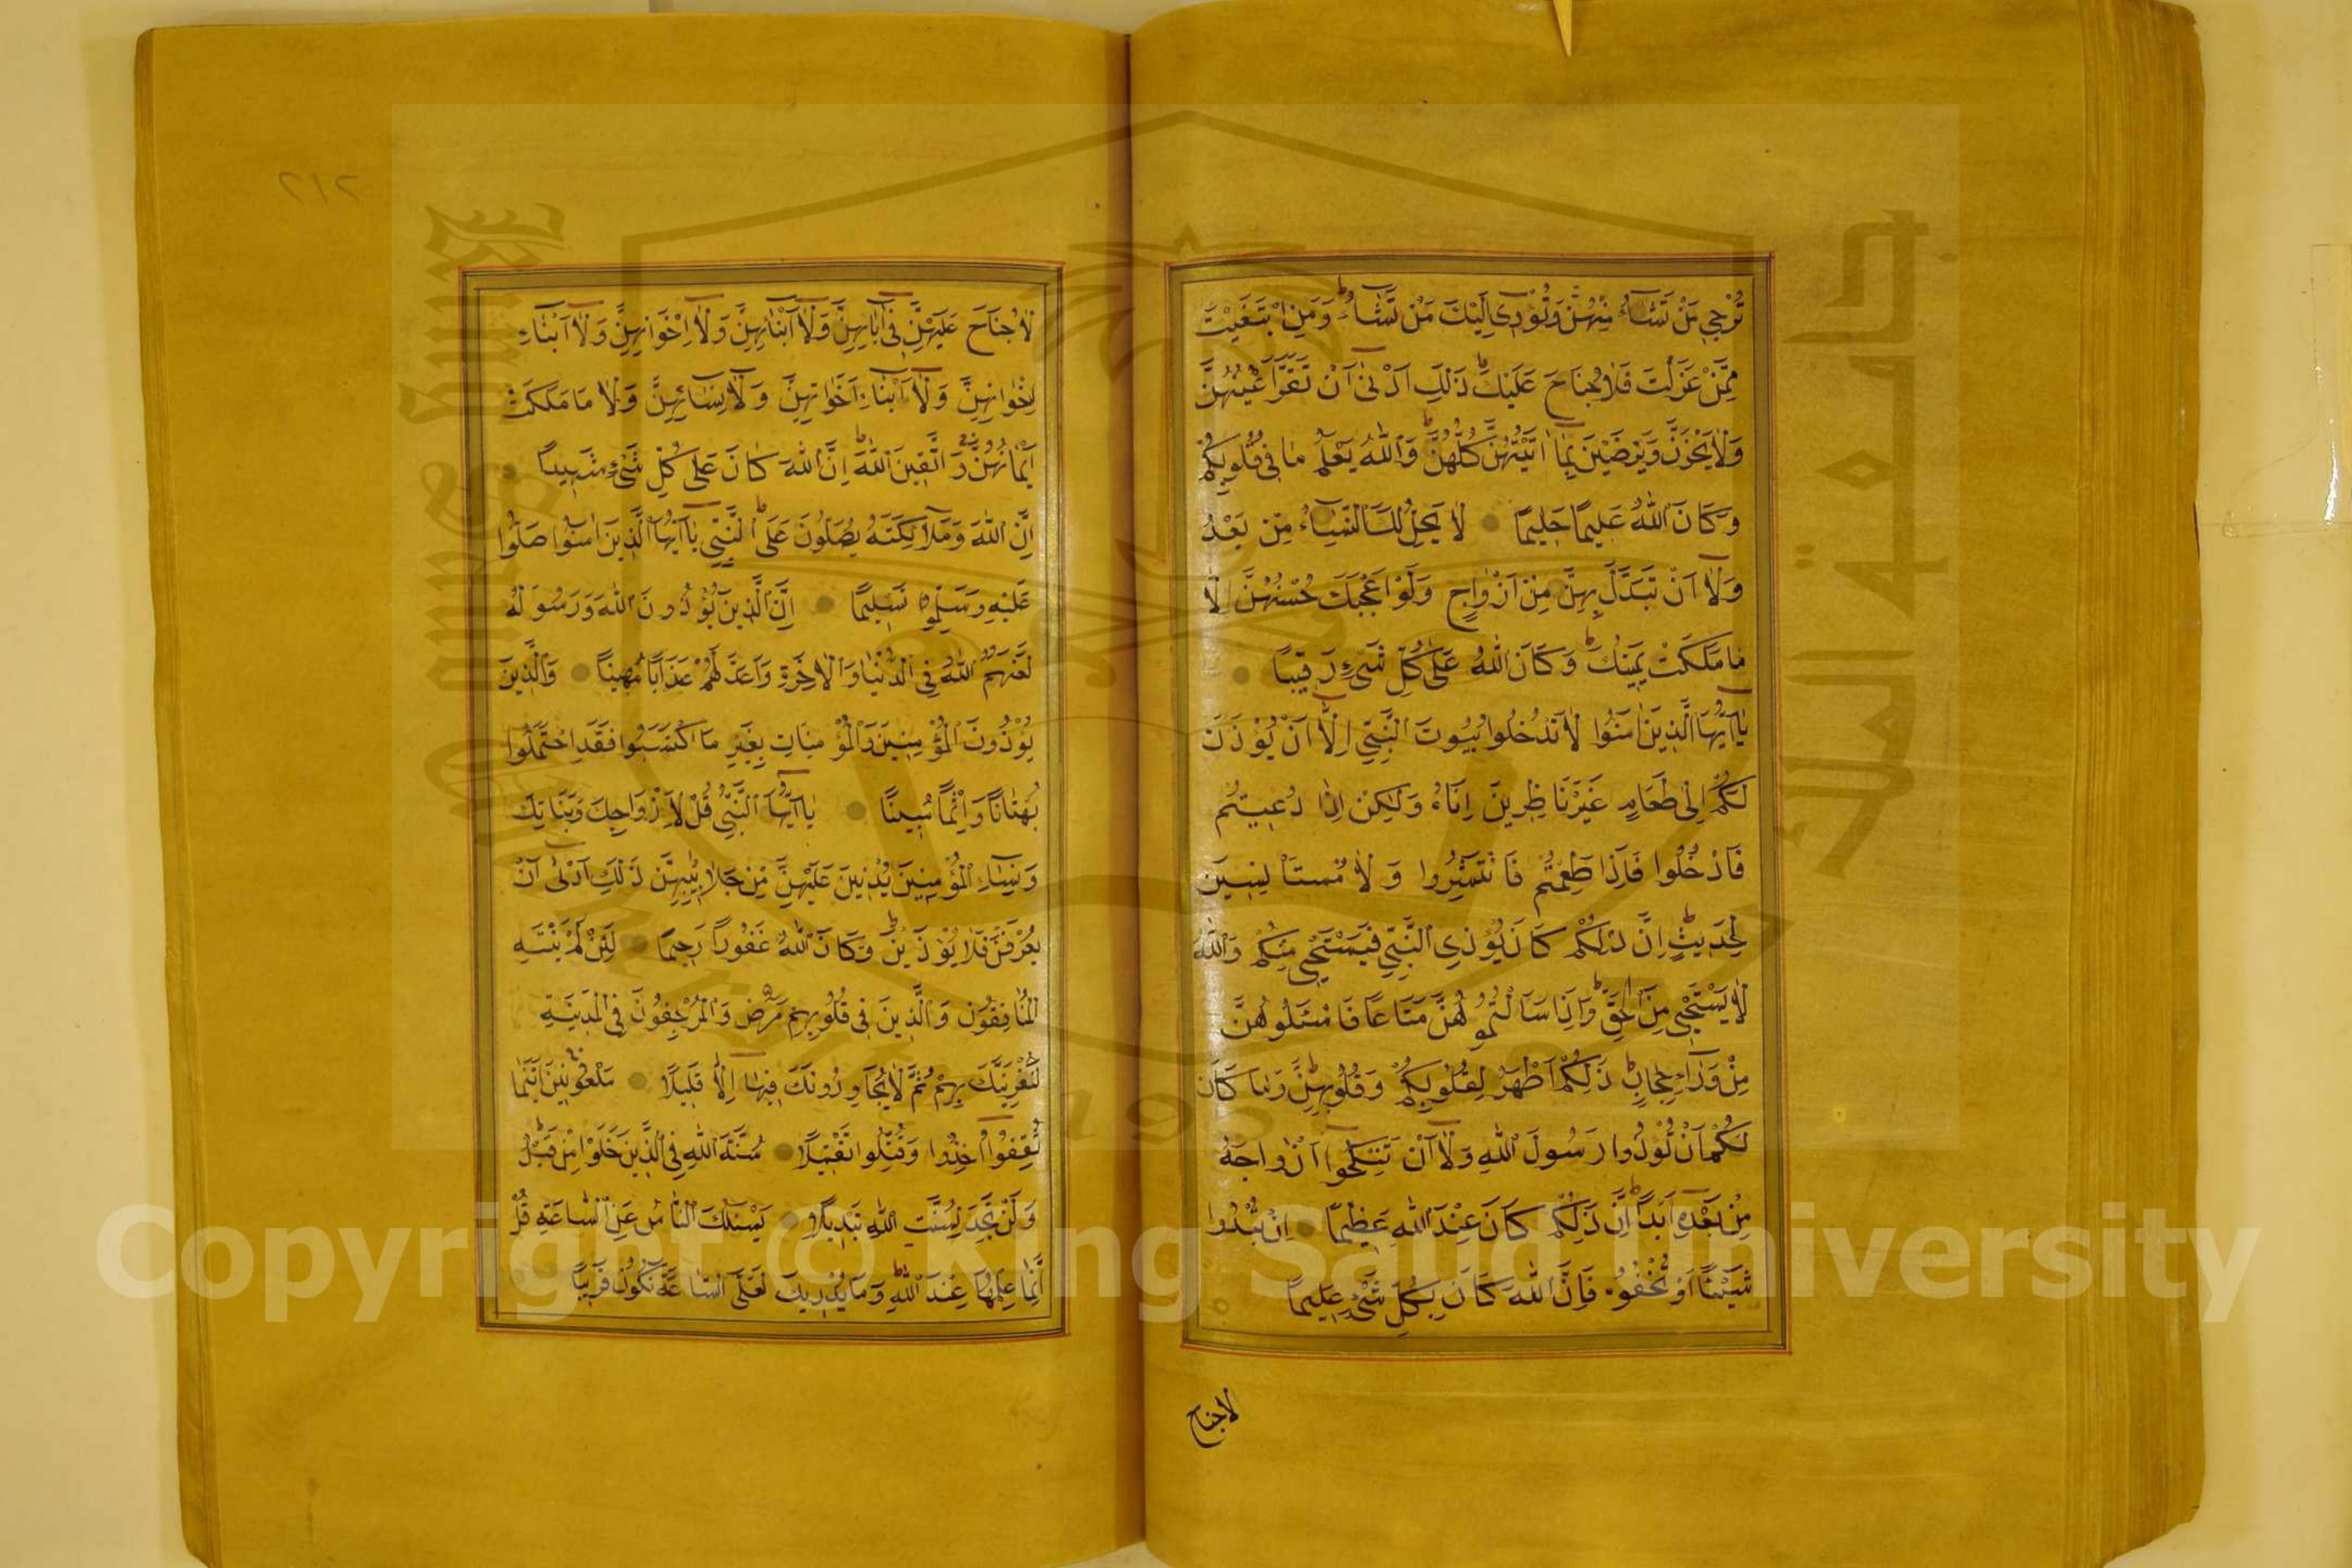 تُرْجِي مَنْ تَشَاءُ مِنْهُنَّ وَتُؤْوِي إِلَيْكَ مَنْ تَشَاءُ ط وَمَنِ ابْتَغَيْتَ
مِمَّنْ عَزَلْتَ فَلَا جُنَاحَ عَلَيْكَ ط ذَلِكَ اَدْنَى اَنْ تَقَرَّ اَعْيُنُهُنَّ
وَلَا يَحْزَنَّ وَيَرْضَيْنَ بِمَا اتَيْتَهُنَّ كُلُّهُنَّ ط وَاللهُ يَعْلَمُ مَا فِي قُلُوبِكُمْ
وَكَانَ اللهُ عَلِيمًا حَلِيمًا لَا يَحِلُّ لَكَ النِّسَاءُ مِنْ بَعْدُ
وَلَا اَنْ تَبَدَّلَ بِهِنَّ مِنْ اَزْوَاجٍ وَلَوْ اَعْجَبَكَ حُسْنُهُنَّ اِلَّا
مَا مَلَكَتْ يَمِينُكَ ط وَكَانَ اللهُ عَلَى كُلِّ شَيْءٍ رَقِيبًا
يَا اَيُّهَا الَّذِينَ امَنُوا لَا تَدْخُلُوا بُيُوتَ النَّبِيِّ اِلَّا اَنْ يُؤْذَنَ
لَكُمْ اِلَى طَعَامٍ غَيْرَ نَاظِرِينَ اِنَاهُ وَلَكِنْ اِذَا دُعِيتُمْ
فَادْخُلُوا فَاِذَا طَعِمْتُمْ فَانْتَشِرُوا وَلَا مُسْتَأْنِسِينَ
لِحَدِيثٍ ط اِنَّ ذَلِكُمْ كَانَ يُؤْذِي النَّبِيَّ فَيَسْتَحْيِي مِنْكُمْ وَاللهُ
لَا يَسْتَحْيِي مِنَ الْحَقِّ ط وَاِذَا سَاَلْتُمُوهُنَّ مَتَاعًا فَاسْئَلُوهُنَّ
مِنْ وَرَاءِ حِجَابٍ ط ذَلِكُمْ اَطْهَرُ لِقُلُوبِكُمْ وَقُلُوبِهِنَّ ط وَمَا كَانَ
لَكُمْ اَنْ تُؤْذُوا رَسُولَ اللهِ وَلَا اَنْ تَنْكِحُوا اَزْوَاجَهُ
مِنْ بَعْدِهِ اَبَدًا ط اِنَّ ذَلِكُمْ كَانَ عِنْدَ اللهِ عَظِيمًا اِنْ تُبْدُوا
شَيْئًا اَوْ تُخْفُوهُ فَاِنَّ اللهَ كَانَ بِكُلِّ شَيْءٍ عَلِيمًا
لاجناح
٢١٢
لَا جُنَاحَ عَلَيْهِنَّ فِي ابَائِهِنَّ وَلَا اَبْنَائِهِنَّ وَلَا اِخْوَانِهِنَّ وَلَا اَبْنَاءِ
اِخْوَانِهِنَّ وَلَا اَبْنَاءِ اَخَوَاتِهِنَّ وَلَا نِسَائِهِنَّ وَلَا مَا مَلَكَتْ
اَيْمَانُهُنَّ وَاتَّقِينَ اللهَ ط اِنَّ اللهَ كَانَ عَلَى كُلِّ شَيْءٍ شَهِيدًا
اِنَّ اللهَ وَمَلَائِكَتَهُ يُصَلُّونَ عَلَى النَّبِيِّ ط يَا اَيُّهَا الَّذِينَ امَنُوا صَلُّوا
عَلَيْهِ وَسَلِّمُوا تَسْلِيمًا اِنَّ الَّذِينَ يُؤْذُونَ اللهَ وَرَسُولَهُ
لَعَنَهُمُ اللهُ فِي الدُّنْيَا وَالْاخِرَةِ وَاَعَدَّ لَهُمْ عَذَابًا مُهِينًا وَالَّذِينَ
يُؤْذُونَ الْمُؤْمِنِينَ وَالْمُؤْمِنَاتِ بِغَيْرِ مَا اكْتَسَبُوا فَقَدِ احْتَمَلُوا
بُهْتَانًا وَاِثْمًا مُبِينًا يَا اَيُّهَا النَّبِيُّ قُلْ لِاَزْوَاجِكَ وَبَنَاتِكَ
وَنِسَاءِ الْمُؤْمِنِينَ يُدْنِينَ عَلَيْهِنَّ مِنْ جَلَابِيبِهِنَّ ذَلِكَ اَدْنَى اَنْ
يُعْرَفْنَ فَلَا يُؤْذَيْنَ ط وَكَانَ اللهُ غَفُورًا رَحِيمًا لَئِنْ لَمْ يَنْتَهِ
الْمُنَافِقُونَ وَالَّذِينَ فِي قُلُوبِهِمْ مَرَضٌ وَالْمُرْجِفُونَ فِي الْمَدِينَةِ
لَنُغْرِيَنَّكَ بِهِمْ ثُمَّ لَا يُجَاوِرُونَكَ فِيهَا اِلَّا قَلِيلًا مَلْعُونِينَ اَيْنَمَا
ثُقِفُوا اُخِذُوا وَقُتِّلُوا تَقْتِيلًا سُنَّةَ اللهِ فِي الَّذِينَ خَلَوْا مِنْ قَبْلُ
وَلَنْ تَجِدَ لِسُنَّتِ اللهِ تَبْدِيلًا يَسْئَلُكَ النَّاسُ عَنِ السَّاعَةِ قُلْ
اِنَّمَا عِلْمُهَا عِنْدَ اللهِ ط وَمَا يُدْرِيكَ لَعَلَّ السَّاعَةَ تَكُونُ قَرِيبًا
Copyright © King Saud University